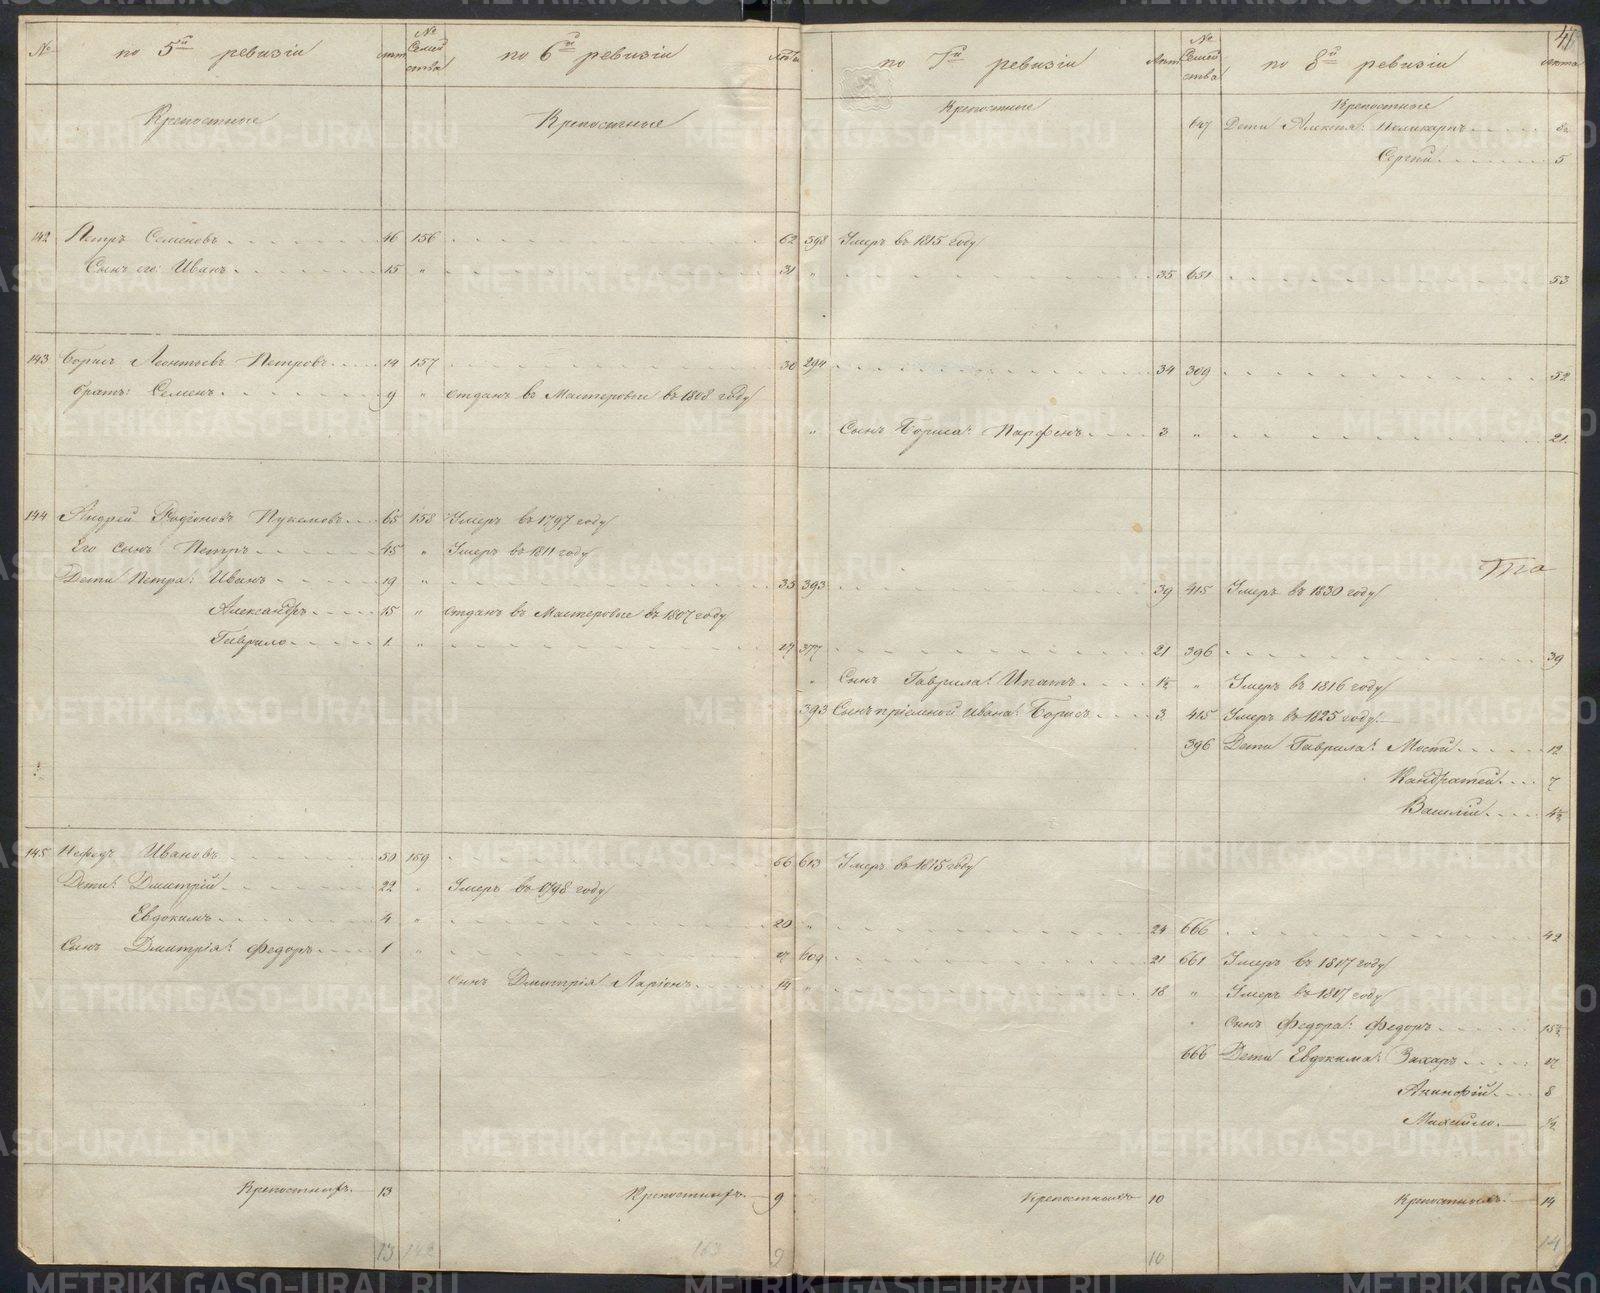 № по 5й ревизіи лѣт № Семейства по 6й ревизіи лѣта по 7й ревизіи лѣт № Семейства по 8й ревизіи лѣта
Крепостные Крепостные Крепостные Крепостные
647 Дети Алексея: Поликарпъ
Сергій 5
142 Петръ Семеновъ 46 156 62 598 Умеръ въ 1815 году
Сынъ его: Иванъ 15 " 31 " 35 651 53
143 Борисъ Леонтьевъ Петровъ 14 157 30 294 34 309 52
братъ: Семенъ 9 " отданъ въ Мастеровые въ 1808 году
" Сынъ Бориса: Парфенъ 3 " 21
144 Андрей Родіоновъ 65 158 Умеръ въ 1797 году
Его сынъ Петръ 45 " Умеръ въ 1811 году
Дети Петра: Иванъ 19 " 35 393 39 415 Умеръ въ 1830 году
Александръ 15 " отданъ въ Мастеровые въ 1807 году
Гаврило 1 " 17 377 21 396 39
" Сынъ Гаврила: Ипатъ 1½ " Умеръ въ 1816 году
393 Сынъ пріемной Ивана: Борисъ 3 415 Умеръ въ 1825 году
396 Дети Гаврила: 12
Кандратей 7
Василій 4½
145 Нефедъ Ивановъ 50 159 66 613 Умеръ въ 1815 году
Дети: Дмитрій 22 " Умеръ въ 1798 году
Евдокимъ 4 " 20 " 24 666 42
Сынъ Дмитрія: Федоръ 1 " 17 609 21 661 Умеръ въ 1817 году
Сынъ Дмитрія Ларіонъ 14 " 18 " Умеръ въ 1817 году
" Сынъ Федора: Федоръ 15½
666 Дети Евдокима: Захаръ 17
8
Михайло ½
Крепостныхъ 13 Крепостныхъ 9 Крепостныхъ 10 Крепостныхъ 14
13 142 163 9 10 14
METRIKI.GASO-URAL.RU